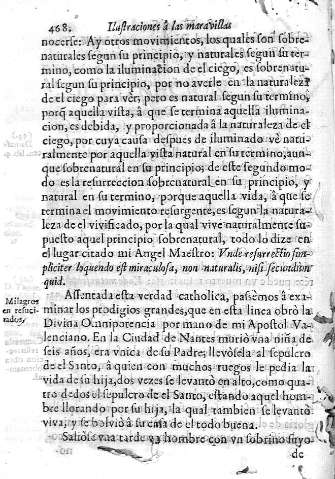 468. Ilustraciones à las maravillas
nocerse: Ay otros movimientos, los quales son sobre-
naturales segun su principio, y naturales segun su ter-
mino, como la iluminacion de el ciego, es sobrenatu-
ral segun su principio, por no averle en la naturaleza
de el ciego para vèr, pero es natural segun su termino,
porq̃ aquella vista, à que se termina aquella ilumina-
cion, es debida, y proporcionada à la naturaleza de el
ciego, por cuya causa despues de iluminado vè natu-
ralmente por aquella vista natural en su termino, aun-
que sobrenatural en su principio; de este segundo mo-
do es la resurreccion sobrenatural en su principio, y
natural en su termino, porque aquella vida, à que se
termina el movimiento resurgente, es segun la natura-
leza de el vivificado, por la qual vive naturalmente su-
puesto aquel principio sobrenatural, todo lo dize en
el lugar citado mi Angel Maestro: Vnde resurrectio sim-
pliciter loquendo est miraculosa, non naturalis, nisi secundum
quid.
Milagros
en resuci-
tados,
Assentada esta verdad catholica, passèmos à exa-
minar los prodigios grandes, que en esta linea obrò la
Divina Omnipotencia por mano de mi Apostol Va-
lenciano. En la Ciudad de Nantes muriò vna niña de
seis años, era vnica de su Padre; llevòsela al sepulcro
de el Santo, à quien con muchos ruegos le pedia la
vida de su hija, dos vezes se levantò en alto, como qua-
tro dedos el sepulcro de el Santo, estando aquel hom-
bre llorando por su hija, la qual tambien se levantò
viva, y se bolviò à su casa de el todo buena.
Saliòse vna tarde vn hombre con vn sobrino suyo
de